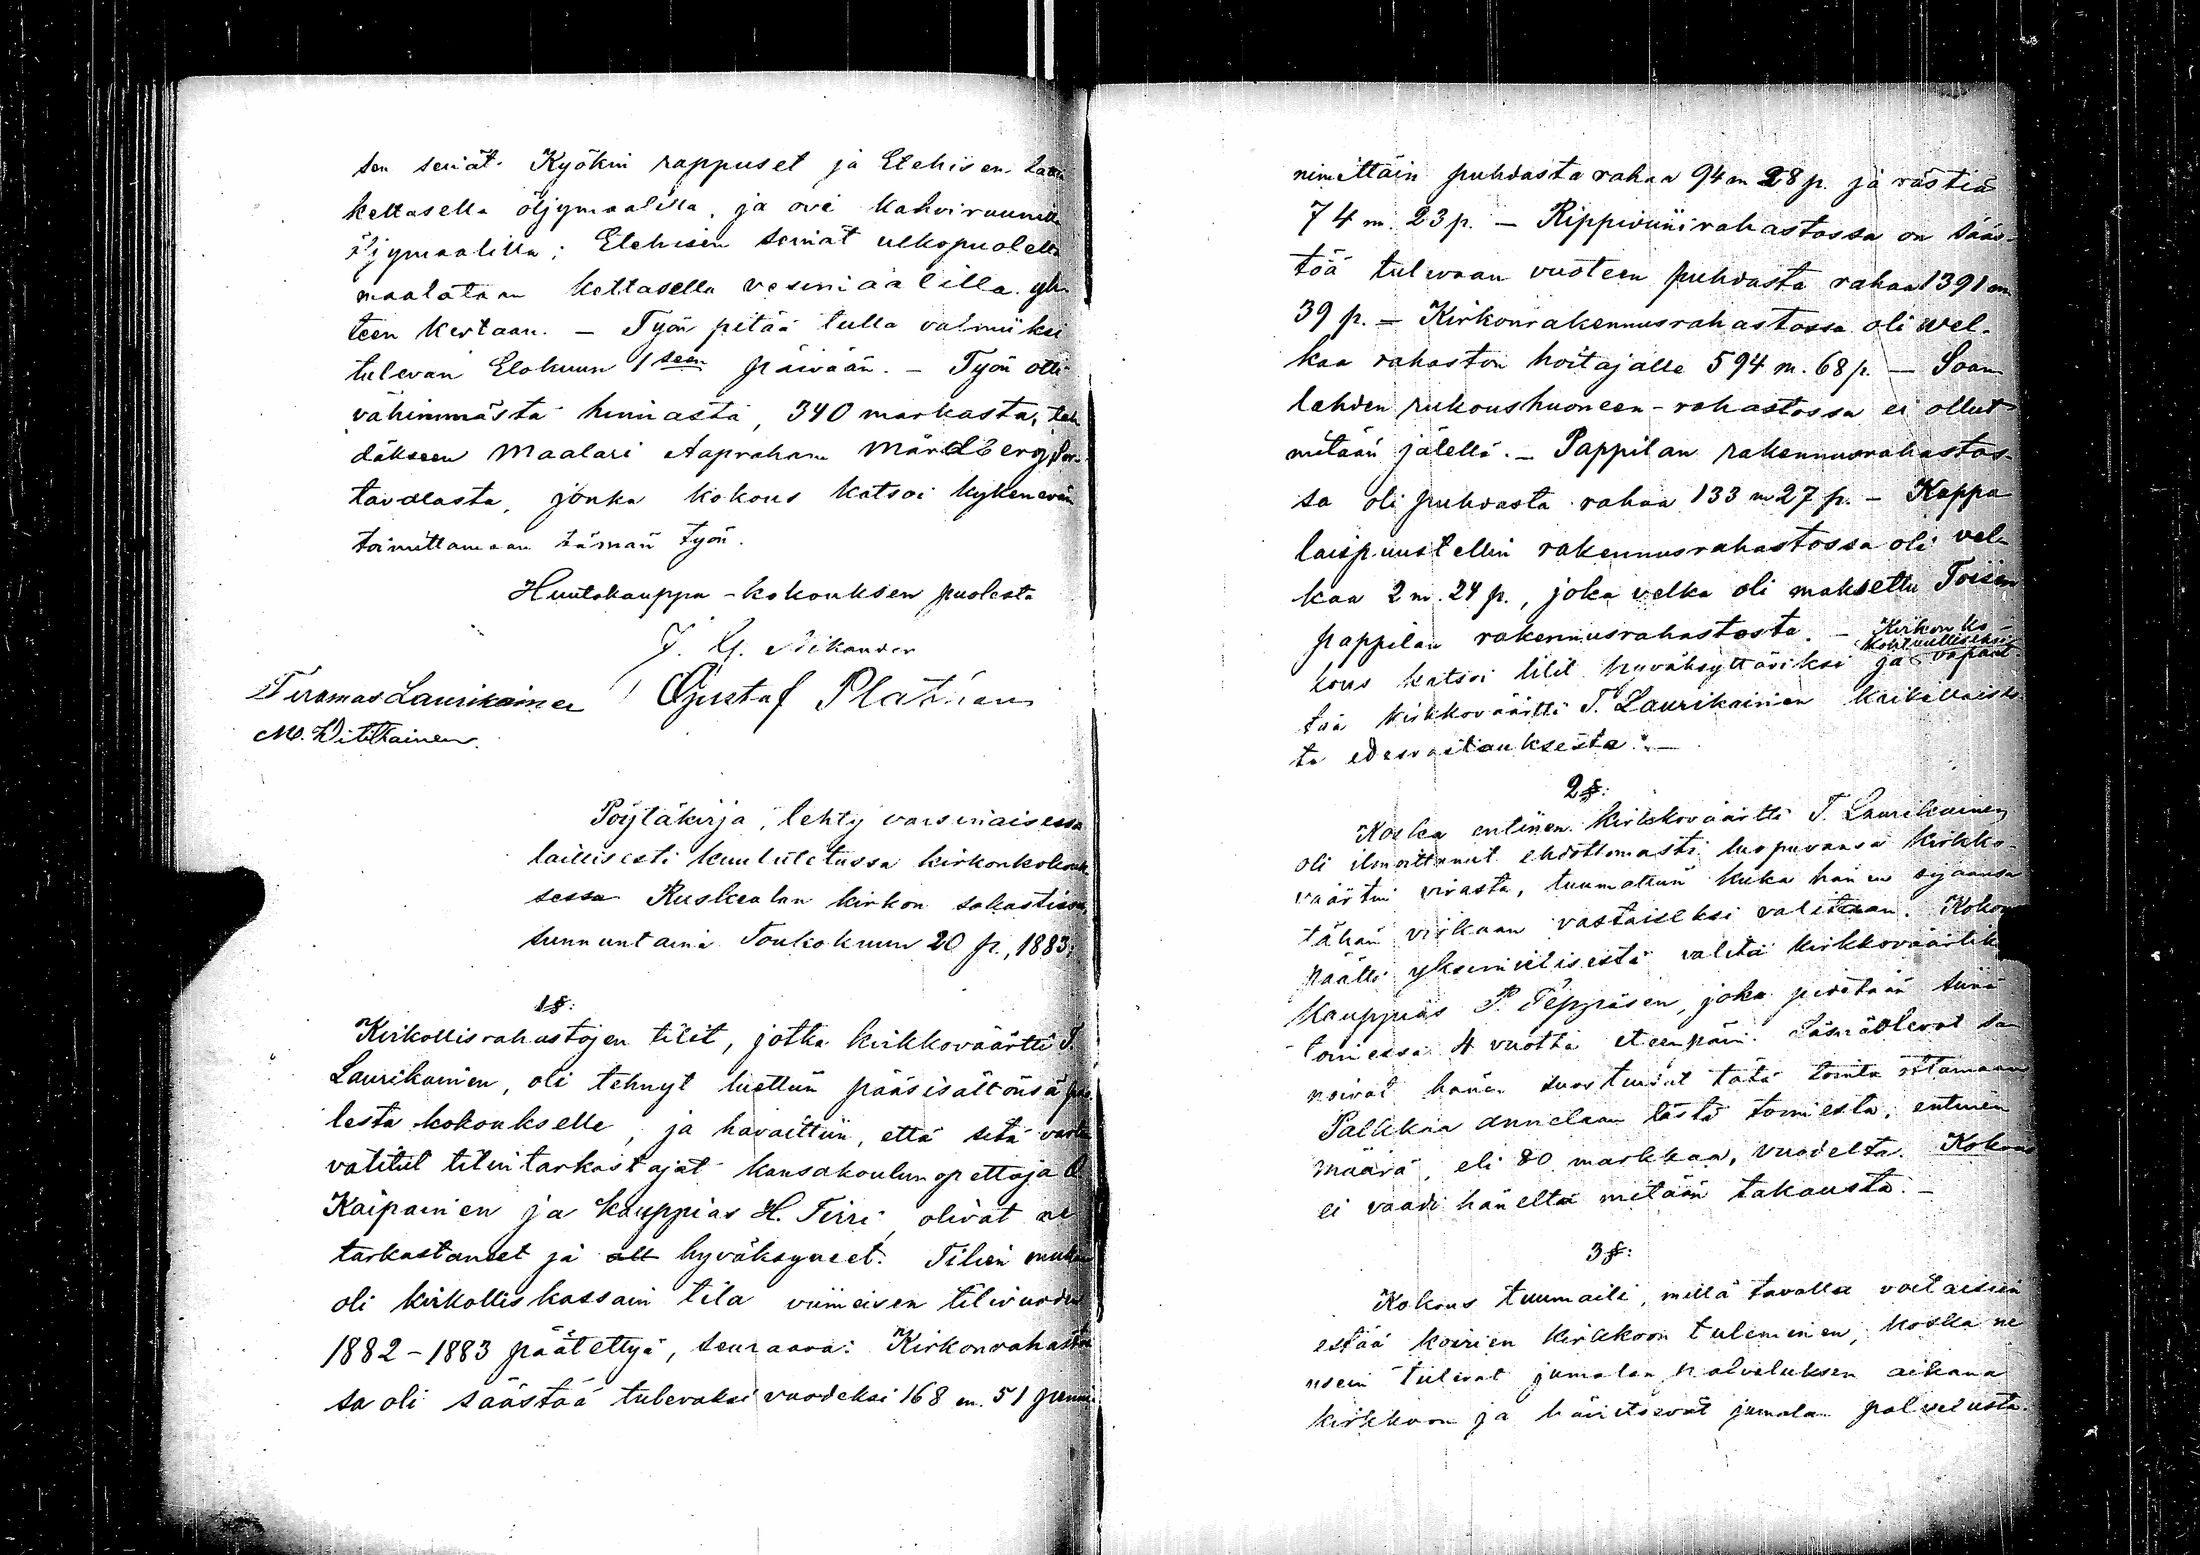 sen seinät. Kyökin rappuset ja Etehisen
keltasella öljymaalilla, ja ovi kahviruunilla
öljymaalilla; Etehisen seinät ulkopuolelta
maalataan keltasella vesimaalilla yh-
teen kertaan. — Työn pitää tulla valmiiksi
tulevan Elokuun 1seen päivään. — Työn otti
vähimmästä hinnasta, 340 markasta, teh
däkseen Maalari Aapraham Mårdberg Sor-
tavalasta, jonka kokous katsoi kykenevän
toimittamaan tämän työn.
Huutokauppa-kokouksen puolesta
J. G. Nikander
Tuomas Laurikainen Gustaf Plathan
M. Litttainen.
Pöytäkirja, tehty varsinaisessa
laillisesti kuulutetussa kirkonkokouk
sessa Ruskealan kirkon sakastissa,
sunnuntaina Toukokuun 20 p., 1883.
1§:
Kirkollisrahastojen tilit, jotka kirkkoväärtti T.
Laurikainen, oli tehnyt luettiin pääsisältönsä puo
lesta kokoukselle, ja havaittiin, että sitä varten
valitut tilintarkastajat kansakoulunopettaja O.
Kaipainen ja kauppias H. Tirri, olivat ne
tarkastaneet ja hyväksyneet. Tilien mukaan
oli kirkolliskassain tila viimeisen tilivuoden
1882-1883 päätettyä, seuraava: Kirkonrahastos
sa oli säästöä tulevaksi vuodeksi 168 m. 51 penniä
nimittäin puhdasta rahaa 94 m 28 p. ja rästiä
74 m. 23 p. — Rippiviinirahastossa on sääs-
töä tulevaan vuoteen puhdasta rahaa 1391 m
39 p. — Kirkonrakennusrahastossa oli vel-
kaa rahaston hoitajalle 594 m. 68 p. — Soan
lahden rukoushuoneen-rahastossa ei ollut
mitään jälellä. — Pappilan rakennusrahastos-
sa oli puhdasta rahaa 133 m 27 p. — Kappa
laispuustellin rakennusrahastossa oli vel-
kaa 2 m. 24 p., joka velka oli maksettu Toisen
pappilan rakennusrahastosta. — Kirkon ko
kous katsoi tilit hyväksyttäviksi kohtuullisiksi ja vapaut-
taa kirkkoväärtti T. Laurikainen kaikellaises-
ta edesvastauksesta. —
2§:
Koska entinen kirkkoväärtti T. Laurikainen
oli ilmoittanut ehdottomasti luopuvansa kirkko-
väärtin virasta, tuumattiin kuka hänen sijaansa
tähän virkaan vastaiseksi valitaan. Kokous
päätti yksimielisestä valita kirkkoväärtiksi
Kauppias P. Tepposen, joka pidetään siinä
toimessa 4 vuotta eteenpäin. Läsnäolevat sa
noivat hänen suostuvat tätä tointa ottamaan
Palkkaa annetaan tästä toimesta, entinen
määrä, eli 80 markkaa, vuodelta. Kokous
ei vaadi häneltä mitään takausta. —
3§:
Kokous tuumaili, millä tavalla voitaisiin
estää koirien kirkkoon tuleminen, koska ne
usein tulevat jumalan palveluksen aikana
kirkkoon ja häiritsevät jumalan palvelusta.